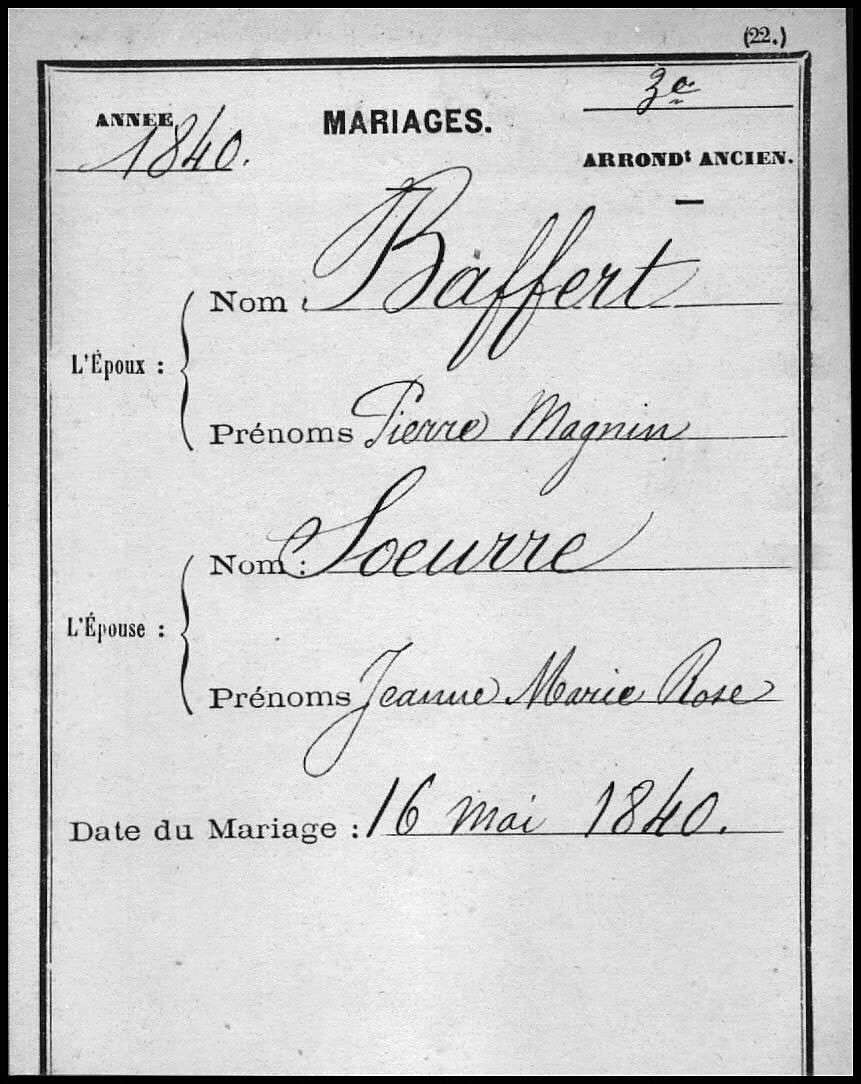 (22.)
ANNEE 1840.
MARIAGES.
3e
ARRONDt ANCIEN.
L'Époux :
Nom : Baffert
Prénoms Pierre Magnin
L'Épouse :
Nom : Soeurre
Prénoms Jeanne Marie Rose
Date du Mariage : 16 mai 1840.